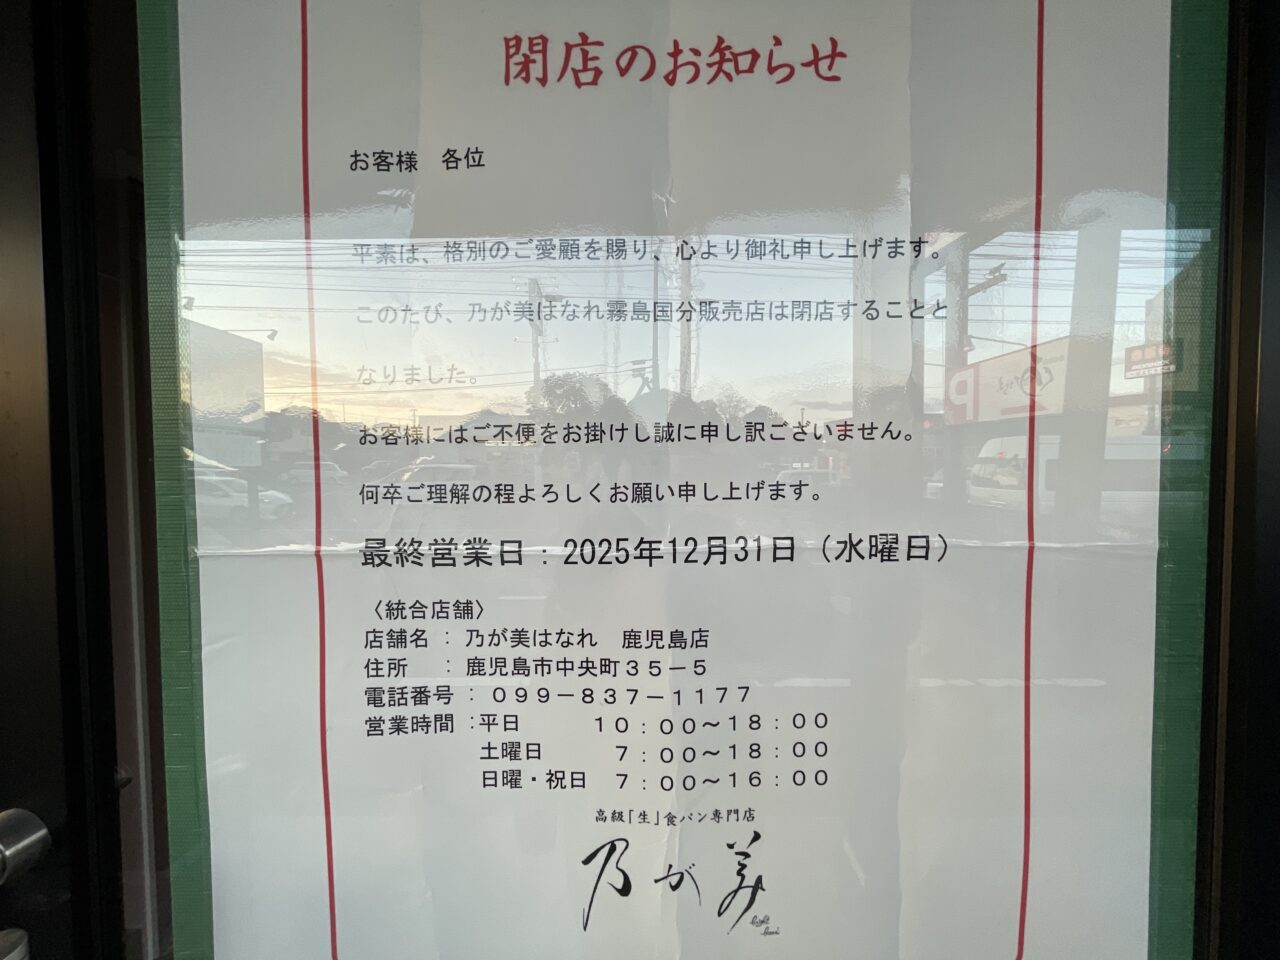 閉店のお知らせ
お客様　各位
平素は、格別のご愛顧を賜り、心より御礼申し上げます。
このたび、乃が美はなれ霧島国分販売店は閉店することと
なりました。
お客様にはご不便をお掛けし誠に申し訳ございません。
何卒ご理解の程よろしくお願い申し上げます。
最終営業日：2025年12月31日（水曜日）
〈統合店舗〉
店舗名：乃が美はなれ　鹿児島店
住所　：鹿児島市中央町３５－５
電話番号：０９９－８３７－１１７７
営業時間：平日　１０：００～１８：００
土曜日　７：００～１８：００
日曜・祝日　７：００～１６：００
高級「生」食パン専門店
乃が美